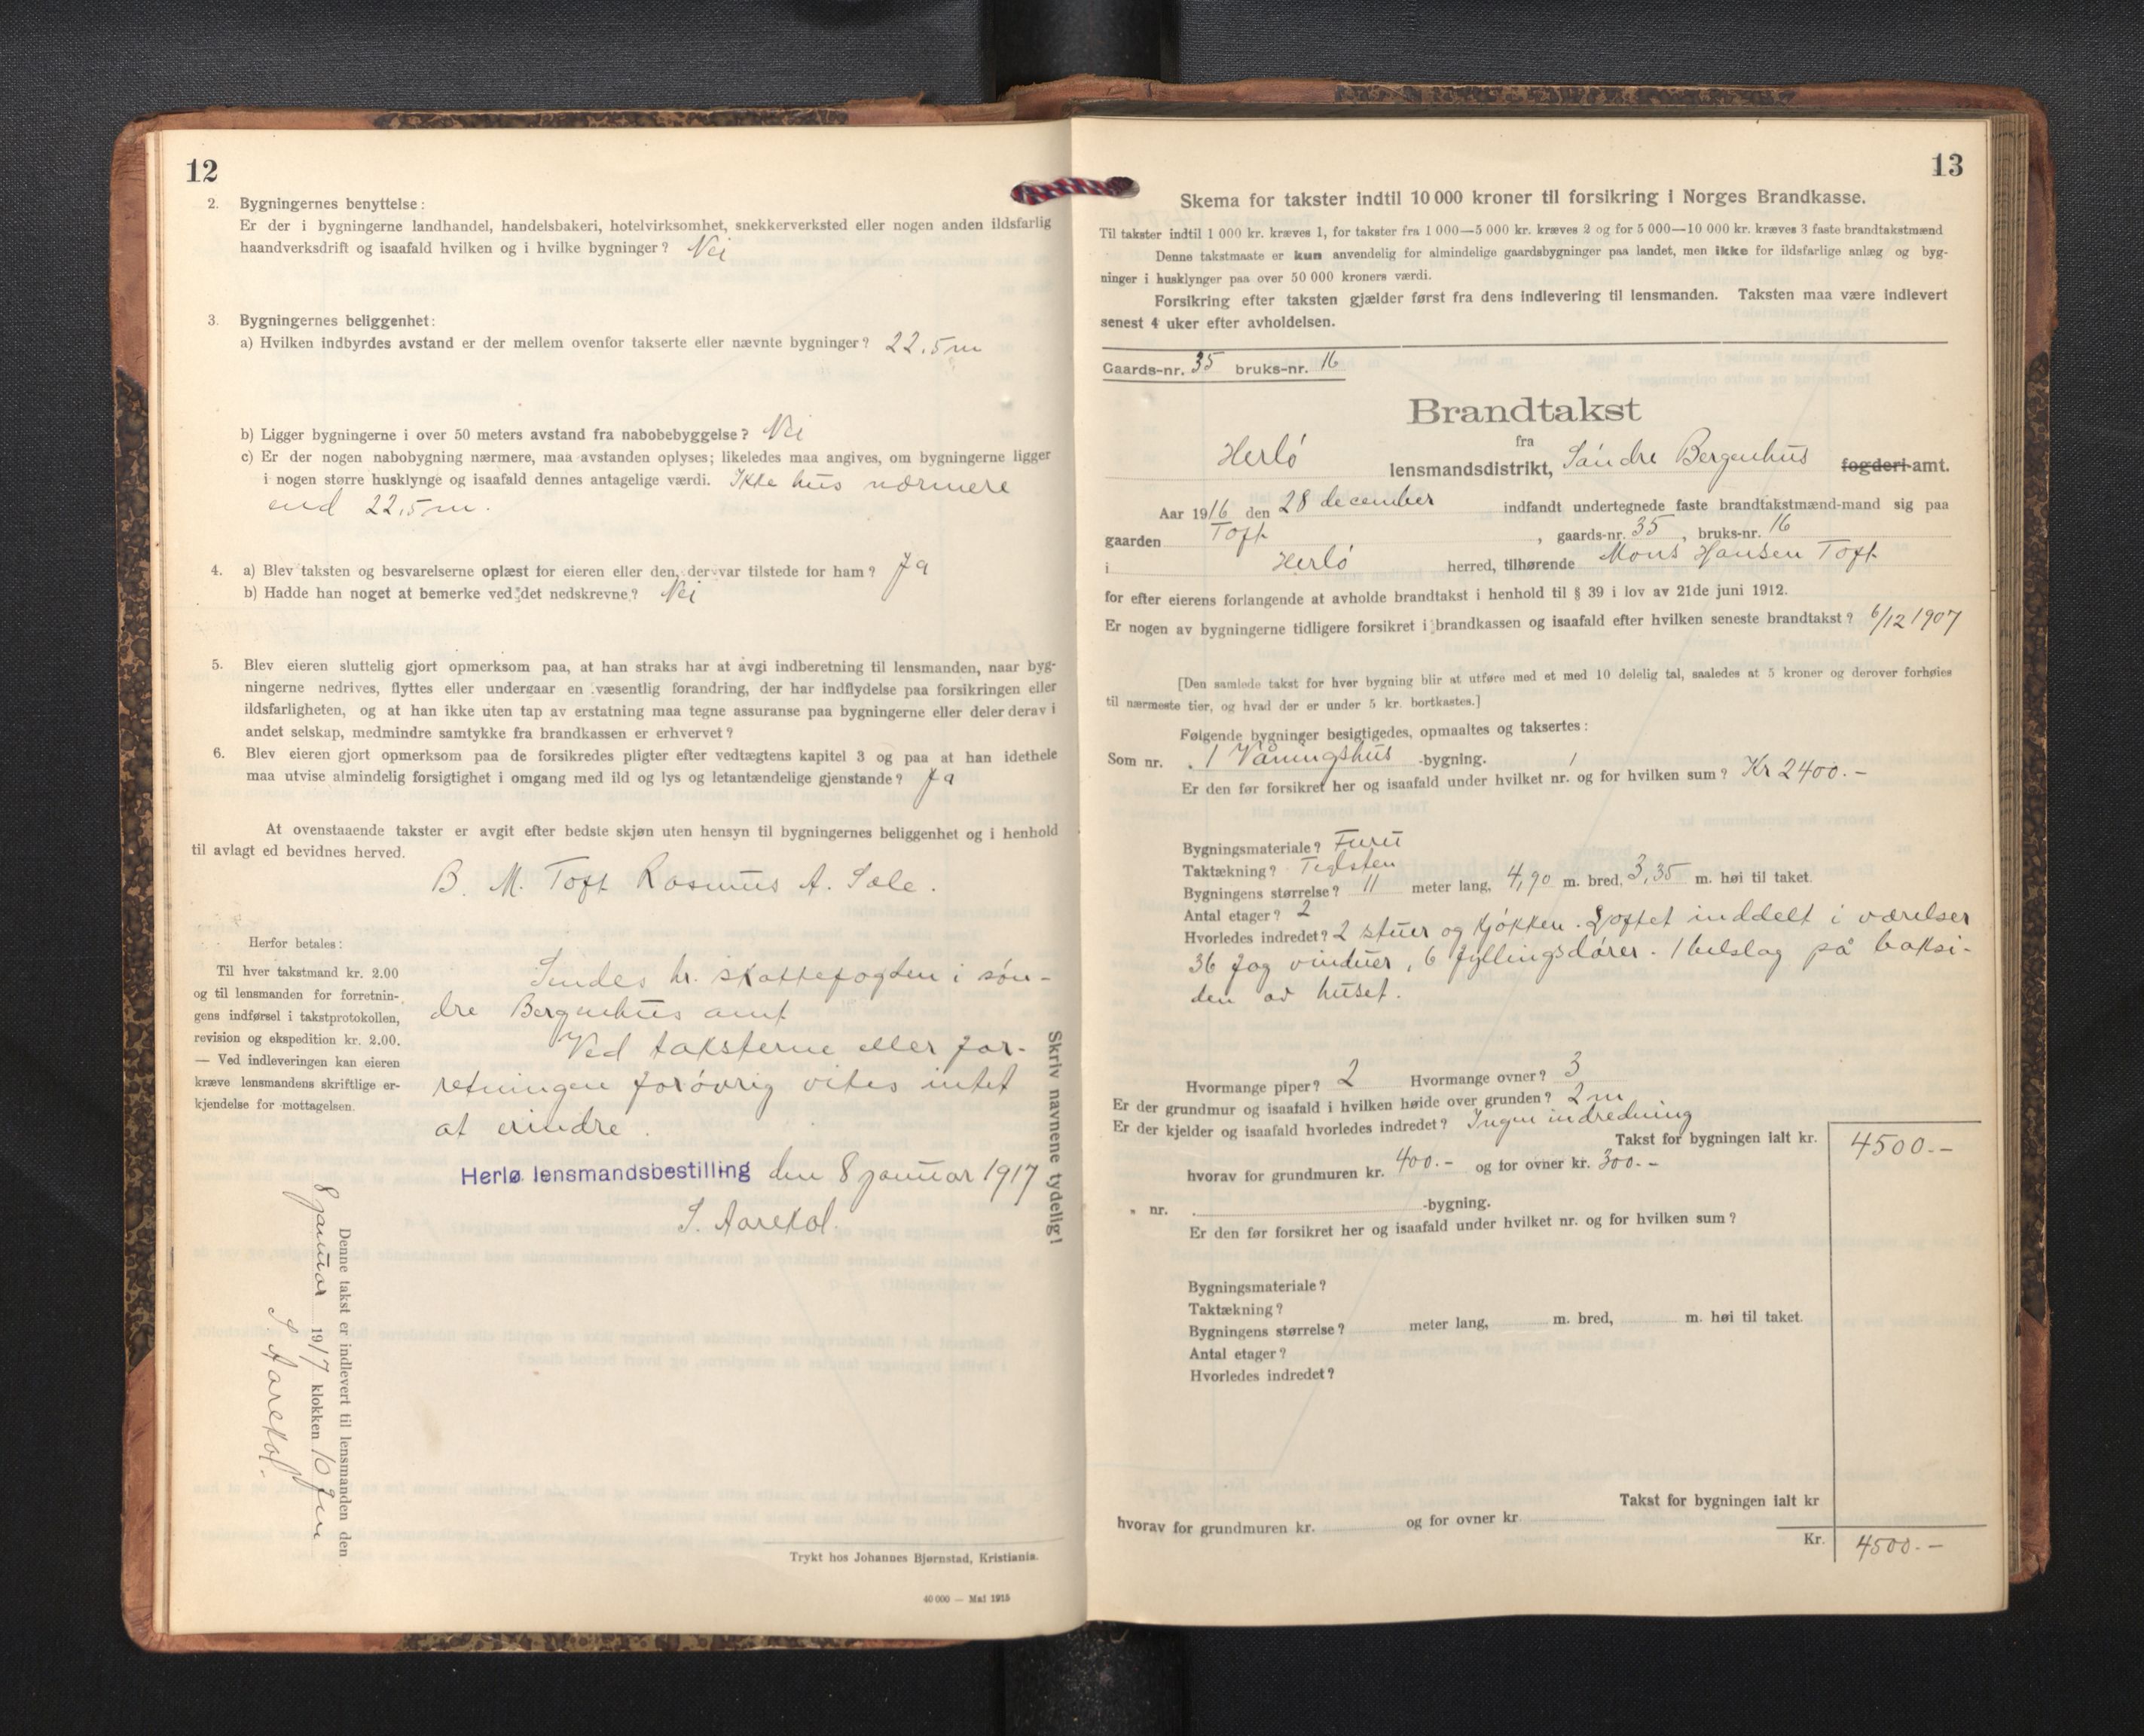 12
2. Bygningernes benyttelse:
Er der i bygningerne landhandel, handelsbakeri, hotelvirksomhet, snekkerverksted eller nogen anden ildsfarlig
haandverksdrift og isaafald hvilken og i hvilke bygninger? Nei
3. Bygningernes beliggenhet:
a) Hvilken indbyrdes avstand er der mellem ovenfor takserte eller nævnte bygninger? 22,5 m
b) Ligger bygningerne i over 50 meters avstand fra nabobebyggelse? Nei
c) Er der nogen nabobygning nærmere, maa avstanden oplyses; likeledes maa angives, om bygningerne ligger
i nogen større husklynge og isaafald dennes antagelige værdi. Ikke hus nærmere
end 22,5 m.
4. a) Blev taksten og besvarelserne oplæst for eieren eller den, der var tilstede for ham? Ja
b) Hadde han noget at bemerke ved det nedskrevne? Nei
5. Blev eieren sluttelig gjort opmerksom paa, at han straks har at avgi indberetning til lensmanden, naar byg-
ningerne nedrives, flyttes eller undergaar en væsentlig forandring, der har indflydelse paa forsikringen eller
ildsfarligheten, og at han ikke uten tap av erstatning maa tegne assuranse paa bygningerne eller deler derav i
andet selskap, medmindre samtykke fra brandkassen er erhvervet?
6. Blev eieren gjort opmerksom paa de forsikredes pligter efter vedtægtens kapitel 3 og paa at han idethele
maa utvise almindelig forsigtighet i omgang med ild og lys og letantændelige gjenstande? Ja
At ovenstaaende takster er avgit efter bedste skjøn uten hensyn til bygningernes beliggenhet og i henhold
til avlagt ed bevidnes herved.
B. M. Toft Rasmus A. Sæle.
Herfor betales:
Til hver takstmand kr. 2.00
og til lensmanden for forretnin-
gens indførsel i takstprotokollen,
revision og ekspedition kr. 2.00.
— Ved indleveringen kan eieren
kræve lensmandens skriftlige er-
kjendelse for mottagelsen.
Sendes hr. skattefogden i søn-
dre Bergenhus amt
Ved taksterne eller for-
retningen forøvrig vites intet
at erindre.
Herlø lensmandsbestilling den 8 januar 1917
S. Aarekol.
Skriv navnene tydelig!
Denne takst er indlevert til lensmanden den
8 januar 1917 klokken 10 fm
S Aarekol.
Trykt hos Johannes Bjørnstad, Kristiania.
40 000 — Mai 1915
13
Skema for takster indtil 10 000 kroner til forsikring i Norges Brandkasse.
Til takster indtil 1 000 kr. kræves 1, for takster fra 1 000—5 000 kr. kræves 2 og for 5 000—10 000 kr. kræves 3 faste brandtakstmænd
Denne takstmaate er kun anvendelig for almindelige gaardsbygninger paa landet, men ikke for ildsfarlige anlæg og byg-
ninger i husklynger paa over 50 000 kroners værdi.
Forsikring efter taksten gjælder først fra dens indlevering til lensmanden. Taksten maa være indlevert
senest 4 uker efter avholdelsen.
Gaards-nr. 35 bruks-nr. 16
Brandtakst
fra
Herlø lensmandsdistrikt, Søndre Bergenhus fogderi-amt.
Aar 1916 den 28 december indfandt undertegnede faste brandtakstmænd-mand sig paa
gaarden Toft, gaards-nr. 35, bruks-nr. 16
i Herlø herred, tilhørende Mons Hansen Toft
for efter eierens forlangende at avholde brandtakst i henhold til § 39 i lov av 21de juni 1912.
Er nogen av bygningerne tidligere forsikret i brandkassen og isaafald efter hvilken seneste brandtakst? 6/12 1907
[Den samlede takst for hver bygning blir at utføre med et med 10 delelig tal, saaledes at 5 kroner og derover forhøies
til nærmeste tier, og hvad der er under 5 kr. bortkastes.]
Følgende bygninger besigtigedes, opmaaltes og taksertes:
Som nr. 1 Våningshus -bygning.
Er den før forsikret her og isaafald under hvilket nr. og for hvilken sum? 1 Kr 2400.-
Bygningsmateriale? Furu
Taktækning? Teglsten
Bygningens størrelse? 11 meter lang, 4,90 m. bred, 3,35 m. høi til taket.
Antal etager? 2
Hvorledes indredet? 2 stuer og kjøkken. Loftet inddelt i værelser
36 fag vinduer, 6 fyllingsdører. 1 helslag på baksi-
den av huset.
Hvormange piper? 2 Hvormange ovner? 3
Er der grundmur og isaafald i hvilken høide over grunden? 2 m
Er der kjelder og isaafald hvorledes indredet? Ingen indredning
Takst for bygningen ialt kr. 4500.-
hvorav for grundmuren kr. 400.- og for ovner kr. 300.-
" nr. -bygning.
Er den før forsikret her og isaafald under hvilket nr. og for hvilken sum?
Bygningsmateriale?
Taktækning?
Bygningens størrelse? meter lang, m. bred, m. høi til taket.
Antal etager?
Hvorledes indredet?
Takst for bygningen ialt kr
hvorav for grundmuren kr. og for ovner kr
Kr. 4500.-